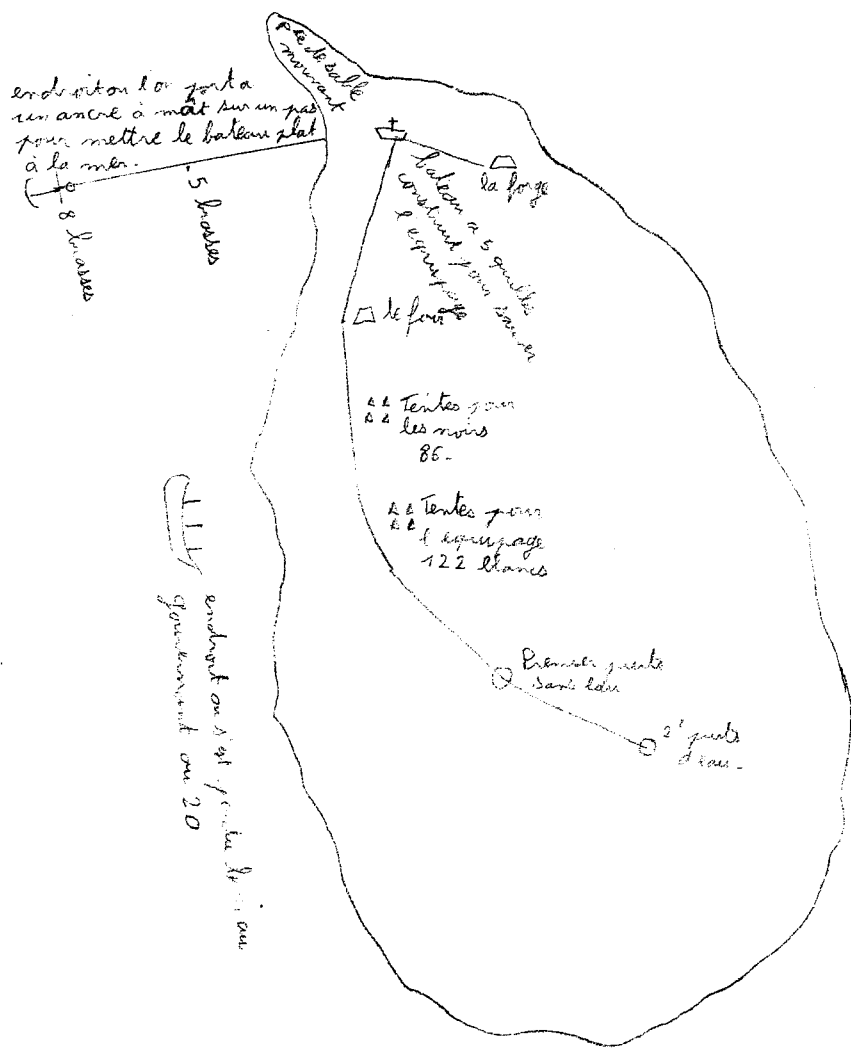 pte de sable
mouvant
endroit ou l'on porta
un ancre à mât sur un pas
pour mettre le bateau plat
à la mer.
5 brasses
8 brasses
la forge
bateau a 5 quilles
construit pour sauver
l'equipage
le four
Tentes pour
les noirs
86-
Tentes pour
l'equipage
122 blancs
endroit ou s'est perdu le
ou 20
Premier puits
sans l'eau
2e puits
d'eau-